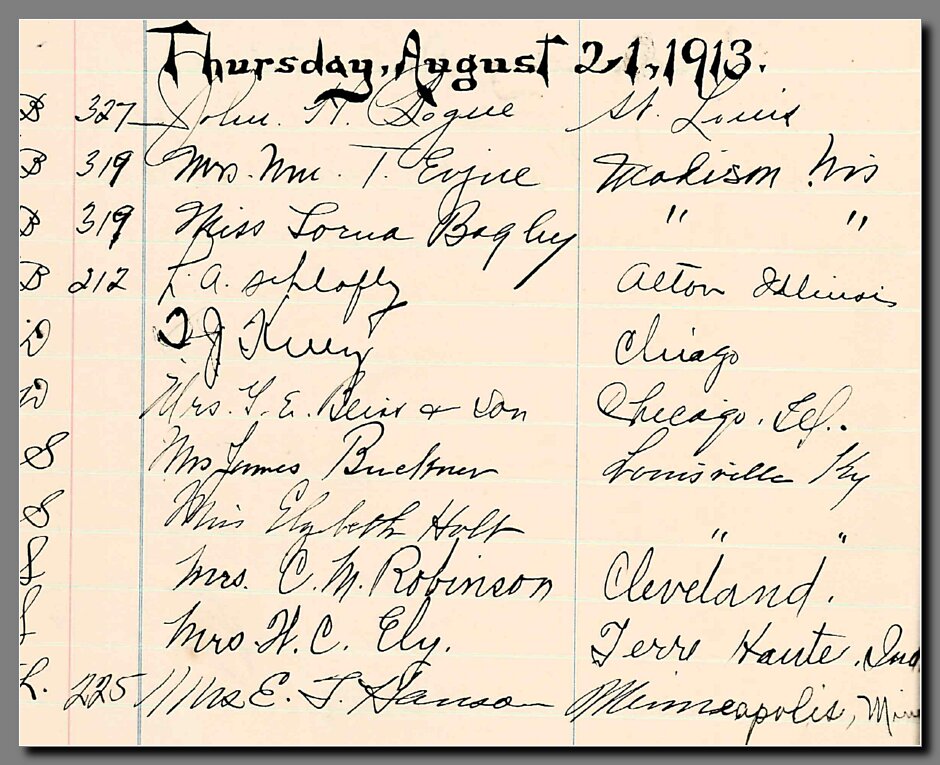 Thursday, August 21, 1913.
B 327 John. H. Bogue St. Louis
B 319 Mrs. Wm. T. Evjue Madison Wis
B 319 Miss Lorna Bagley " "
B 212 L. A. Schlafly Alton Illinois
D J Chicago
D Mrs. T. E. & Son Chicago. Ill.
S Mrs James Buckner Louisville Ky
S Miss Elizbeth Holt " "
S Mrs. C. M. Robinson Cleveland.
Mrs H. C. Ely. Terre Haute. Ind
L. 225 Mrs E. T. Hanson Minneapolis, Minn